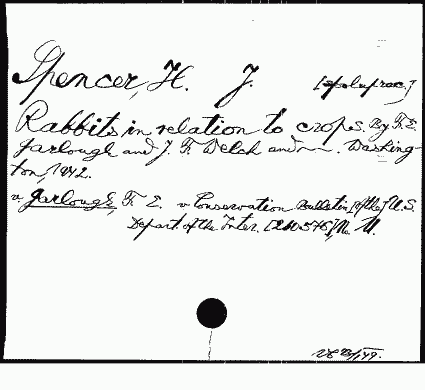 Spencer, H. J.
Rabbits in relation to crops. By F. E.
Garlough and J. F. Welch and —. Washing-
ton, 1942.
v. Garlough, F. E. v. Conservation Bulletin [of the] U.S.
Depart. of the Inter. [240576] No. 11.